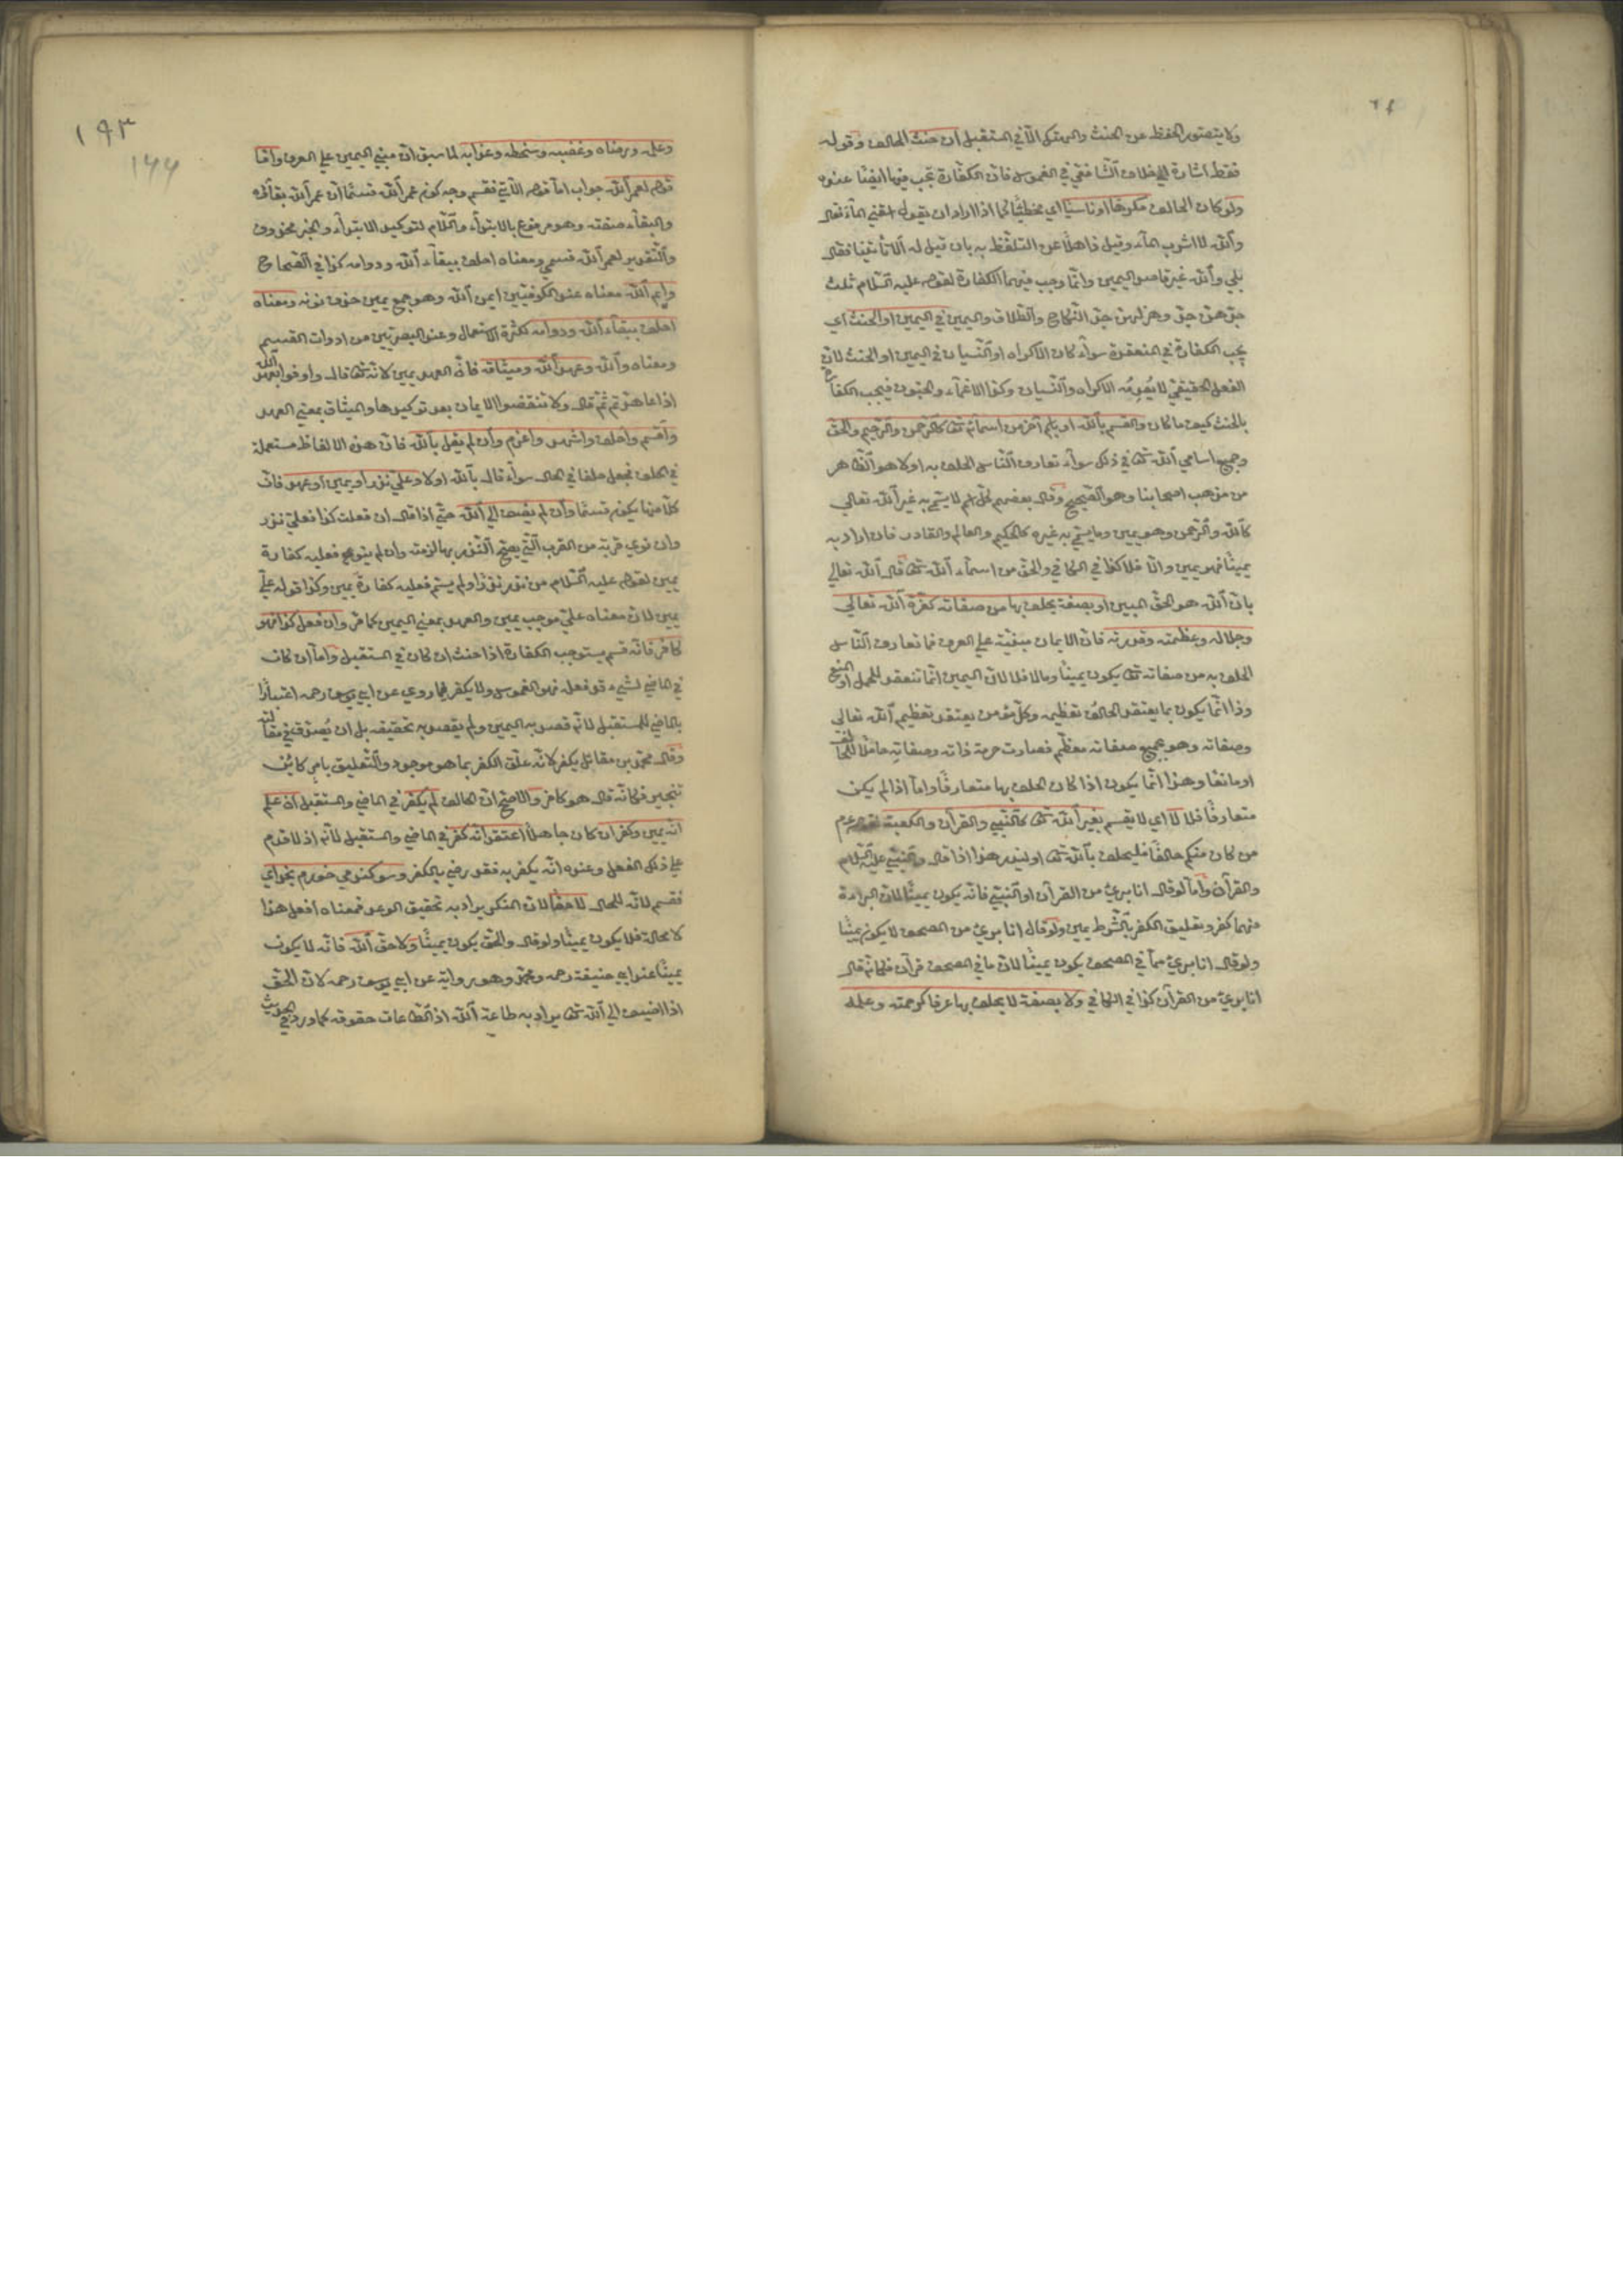 ولا يتصور الحفظ عن الحنث والهتك الا في المستقبل ان حنث الحالف وقوله
فقط اشارة الي خلاف الشافعي في الغموس فان الكفارة تجب فيها ايضا عنده
ولو كان الحالف مكرها او ناسيا اي مخطئا كما اذا اراد ان يقول اسقني الماء فقال
والله لا اشرب الماء وقيل ذاهلا عن التلفظ به بان قيل له الا تأتينا فقال
بلي والله غير قاصد اليمين وانما وجب فيهما الكفارة لقوله عليه السلام ثلث
جدهن جد وهزلهن جد النكاح والطلاق واليمين في اليمين او الحنث اي
يجب الكفارة في المنعقدة سواء كان الاكراه او النسيان في اليمين او الحنث لان
الفعل الحقيقي لا يعدمه الاكراه والنسيان وكذا الاغماء والجنون فيجب الكفارة
بالحنث كيف ما كان والقسم بالله او باسم آخر من اسمائه تعالى كالرحمن والرحيم والحق
وجميع اسامي الله تعالى في ذلك سواء تعارف الناس الحلف به اولا هو الظاهر
من مذهب اصحابنا وهو الصحيح وقال بعضهم كل اسم لا يسمي به غير الله تعالي
كالله والرحمن وهو يمين وما يسمي به غيره كالحكيم والعالم والقادر فان اراد به
يمينا فهو يمين والا فلا كذا في الكافي والحق من اسماء الله تعالى قال الله تعالي
بان الله هو الحق المبين او بصفة يحلف بها من صفاته كعزة الله تعالي
وجلاله وعظمته وقدرته فان الايمان مبنية علي العرف فما تعارف الناس
الحلف به من صفاته تعالى يكون يمينا وما لا فلا لان اليمين انما تنعقد للحمل او المنع
وذا انما يكون بما يعتقد الحالف تعظيمه وكل مؤمن يعتقد تعظيم الله تعالي
وصفاته وهو بجميع صفاته معظم فصارت حرمة ذاته وصفاته حاملا للحالف
او مانعا وهذا انما يكون اذا كان الحلف بها متعارفا واما اذا لم يكن
متعارفا فلا لا اي لا يقسم بغير الله تعالى كالنبي والقرآن والكعبة لقوله عم
من كان منكم حالفا فليحلف بالله تعالى او ليذر هذا اذا قال والنبي عليه السلام
والقرآن واما لو قال انا بريء من القرآن او النبي فانه يكون يمينا لان البراءة
منهما كفر وتعليق الكفر بالشرط يمين ولو قال انا بريء من المصحف لا يكون يمينا
ولو قال انا بريء مما في المصحف يكون يمينا لان ما في المصحف قرآن فكانه قال
انا بريء من القرآن كذا في الكافي ولا بصفة لا يحلف بها عرفا كرحمته وعلمه
١٩٣
١٩٩
وعلمه ورضاه وغضبه وسخطه وعذابه لما سبق ان مبني اليمين علي العرف واما
قوله لعمر الله جواب اما قوله الاتي فقسم وجه كونه عمر الله قسما ان عمر الله بقاؤه
والبقاء صفته وهو مرفوع بالابتداء واللام لتوكيد الابتداء والخبر محذوف
والتقدير لعمر الله قسمي ومعناه احلف ببقاء الله ودوامه كذا في الصحاح
وايم الله معناه عند الكوفيين ايمن الله وهو جمع يمين حذف نونه ومعناه
احلف ببقاء الله ودوامه لكثرة الاستعمال وعند البصريين من ادوات القسم
ومعناه والله وعهد الله وميثاقه فان العهد يمين لانه تعالى قال واوفوا بعهد الله
اذا عاهدتم ثم قال ولا تنقضوا الايمان بعد توكيدها والميثاق بمعني العهد
واقسم واحلف واشهد واعزم وان لم يقل بالله فان هذه الالفاظ مستعملة
في الحلف فجعل حلفا في الحال سواء قال بالله اولا وعلي نذر او يمين او عهد فان
كلا منها يكون قسما وان لم يضف الي الله حتي اذا قال ان فعلت كذا فعلي نذر
وان نوي قربة من القرب التي يصح النذر بها لزمته وان لم ينو فعليه كفارة
يمين لقوله عليه السلام من نذر نذرا ولم يسم فعليه كفارة يمين وكذا قوله علي
يمين لان معناه علي موجب يمين والعهد بمعني اليمين كما مر وان فعل كذا فهو
كافر فانه قسم يستوجب الكفارة اذا حنث ان كان في المستقبل واما ان كان
في الماضي لشيء قد فعله فهو الغموس ولا يكفر فيما روي عن ابي يوسف رحمه اعتبارا
بالماضي للمستقبل لانه قصد به اليمين ولم يقصد به تحقيقه بل ان يصدق في مقالته
وقال محمد بن مقاتل يكفر لانه علق الكفر بما هو موجود والتعليق بامر كائن
تنجيز فكانه قال هو كافر والاصح ان الحالف لم يكفر في الماضي والمستقبل ان علم
انه يمين وكفر ان كان جاهلا اعتقد انه كفر في الماضي والمستقبل لانه اذا اقدم
علي ذلك الفعل وعنده انه يكفر به فقد رضي بالكفر وسوكند مي خورم بخداي
فقسم لانه للحال لا حقا لان المنكر يراد به تحقيق الوعد فمعناه افعل هذا
لا محالة فلا يكون يمينا ولو قال والحق يكون يمينا ولا حق الله فانه لا يكون
يمينا عند ابي حنيفة رحمه ومحمد وهو رواية عن ابي يوسف رحمه لان الحق
اذا اضيف الي الله تعالى يراد به طاعة الله اذ الطاعات حقوقه كما ورد في الحديث